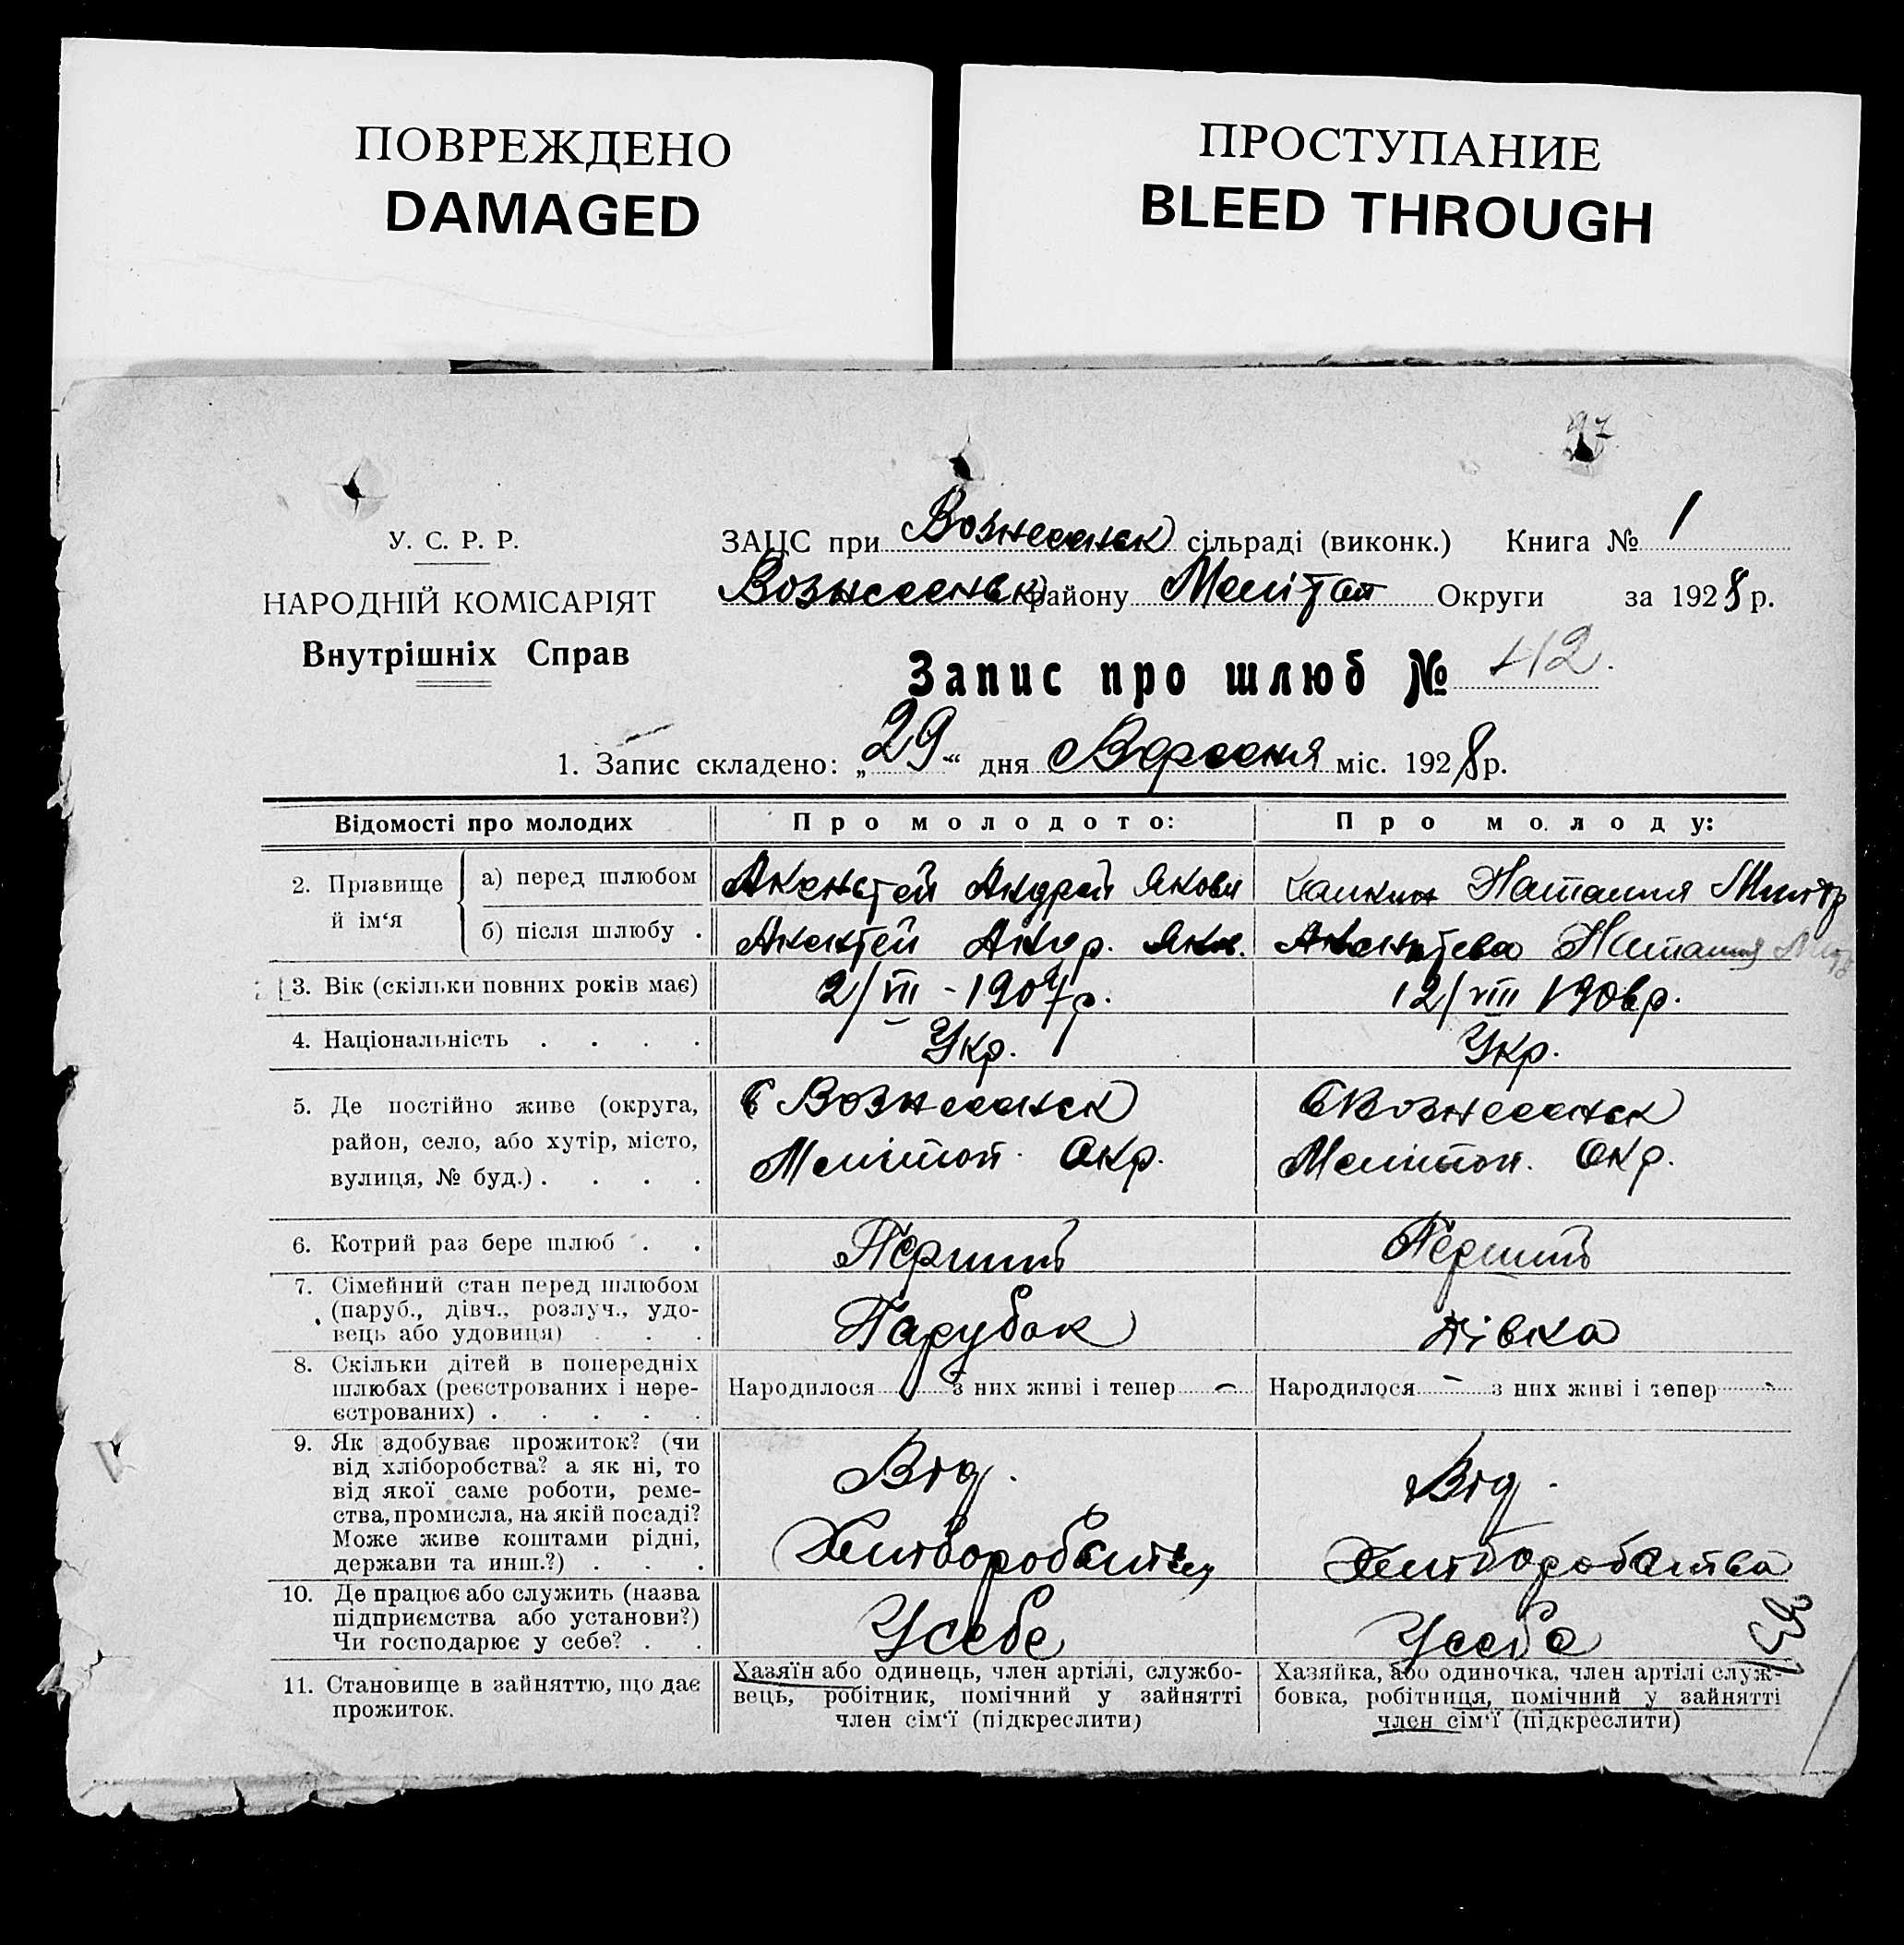 ПОВРЕЖДЕНО
DAMAGED
ПРОСТУПАНИЕ
BLEED THROUGH
У. С. Р. Р.
НАРОДНІЙ КОМІСАРІЯТ
Внутрішніх Справ
ЗАЦС при Вознесенск сільраді (виконк.) Книга № 1
Вознесенськ району Меліт Округи за 1928 р.
Запис про шлюб № 42.
1. Запис складено: „29“ дня Вересня міс. 1928 р.
Відомості про молодих
Про молодого:
Про молоду:
2. Прізвище й ім‘я
а) перед шлюбом
Андрей Якови
Наталия
б) після шлюбу .
Андр. Яков.
Наталия
3. Вік (скільки повних років має)
2/VII - 1907р.
12/VIII 1906р.
4. Національність . . . .
Укр.
Укр.
5. Де постійно живе (округа,
район, село, або хутір, місто,
вулиця, № буд.) . . . .
с Вознесенск
Мелітоп. Окр.
с Вознесенск
Мелітоп. Окр.
6. Котрий раз бере шлюб . .
Перший
Перший
7. Сімейний стан перед шлюбом
(паруб., дівч., розлуч., удо-
вець або удовиця) . . .
Парубок
Дівка
8. Скільки дітей в попередніх
шлюбах (реєстрованих і нере-
єстрованих) . . . . .
Народилося — з них живі і тепер —
Народилося — з них живі і тепер -
9. Як здобуває прожиток? (чи
від хліборобства? а як ні, то
від якої саме роботи, реме-
ства, промисла, на якій посаді?
Може живе коштами рідні,
держави та инш.?) . . .
Від.
Хліборобства
Від.
Хліборобства
10. Де працює або служить (назва
підприємства або установи?)
Чи господарює у себе? . .
Усебе
Усебе
11. Становище в зайняттю, що дає
прожиток.
Хазяїн або одинець, член артілі, службо-
вець, робітник, помічний у зайнятті
член сім‘ї (підкреслити)
Хазяйка, або одиночка, член артілі служ-
бовка, робітниця, помічний у зайнятті
член сім‘ї (підкреслити)